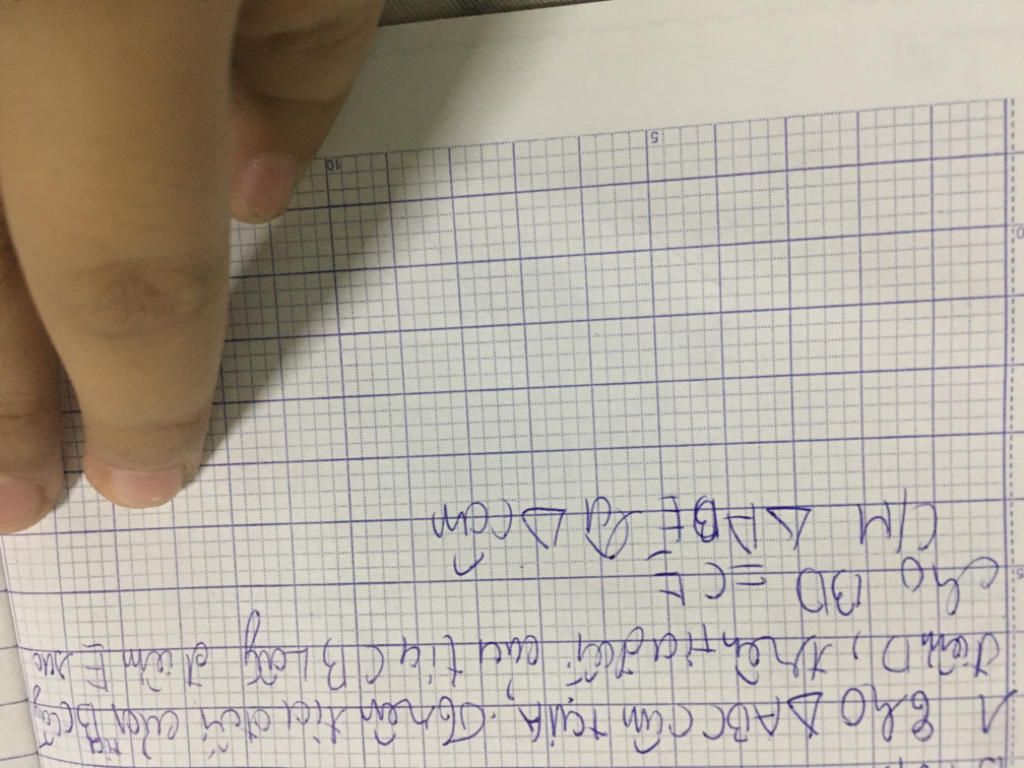 1 Cho ΔABC cân tại A. Trên tia đối của tia BC lấy
điểm D, trên tia đối của tia CB lấy điểm E sao
cho BD = CE
C/M ΔABE là Δ cân
5
0
5
10